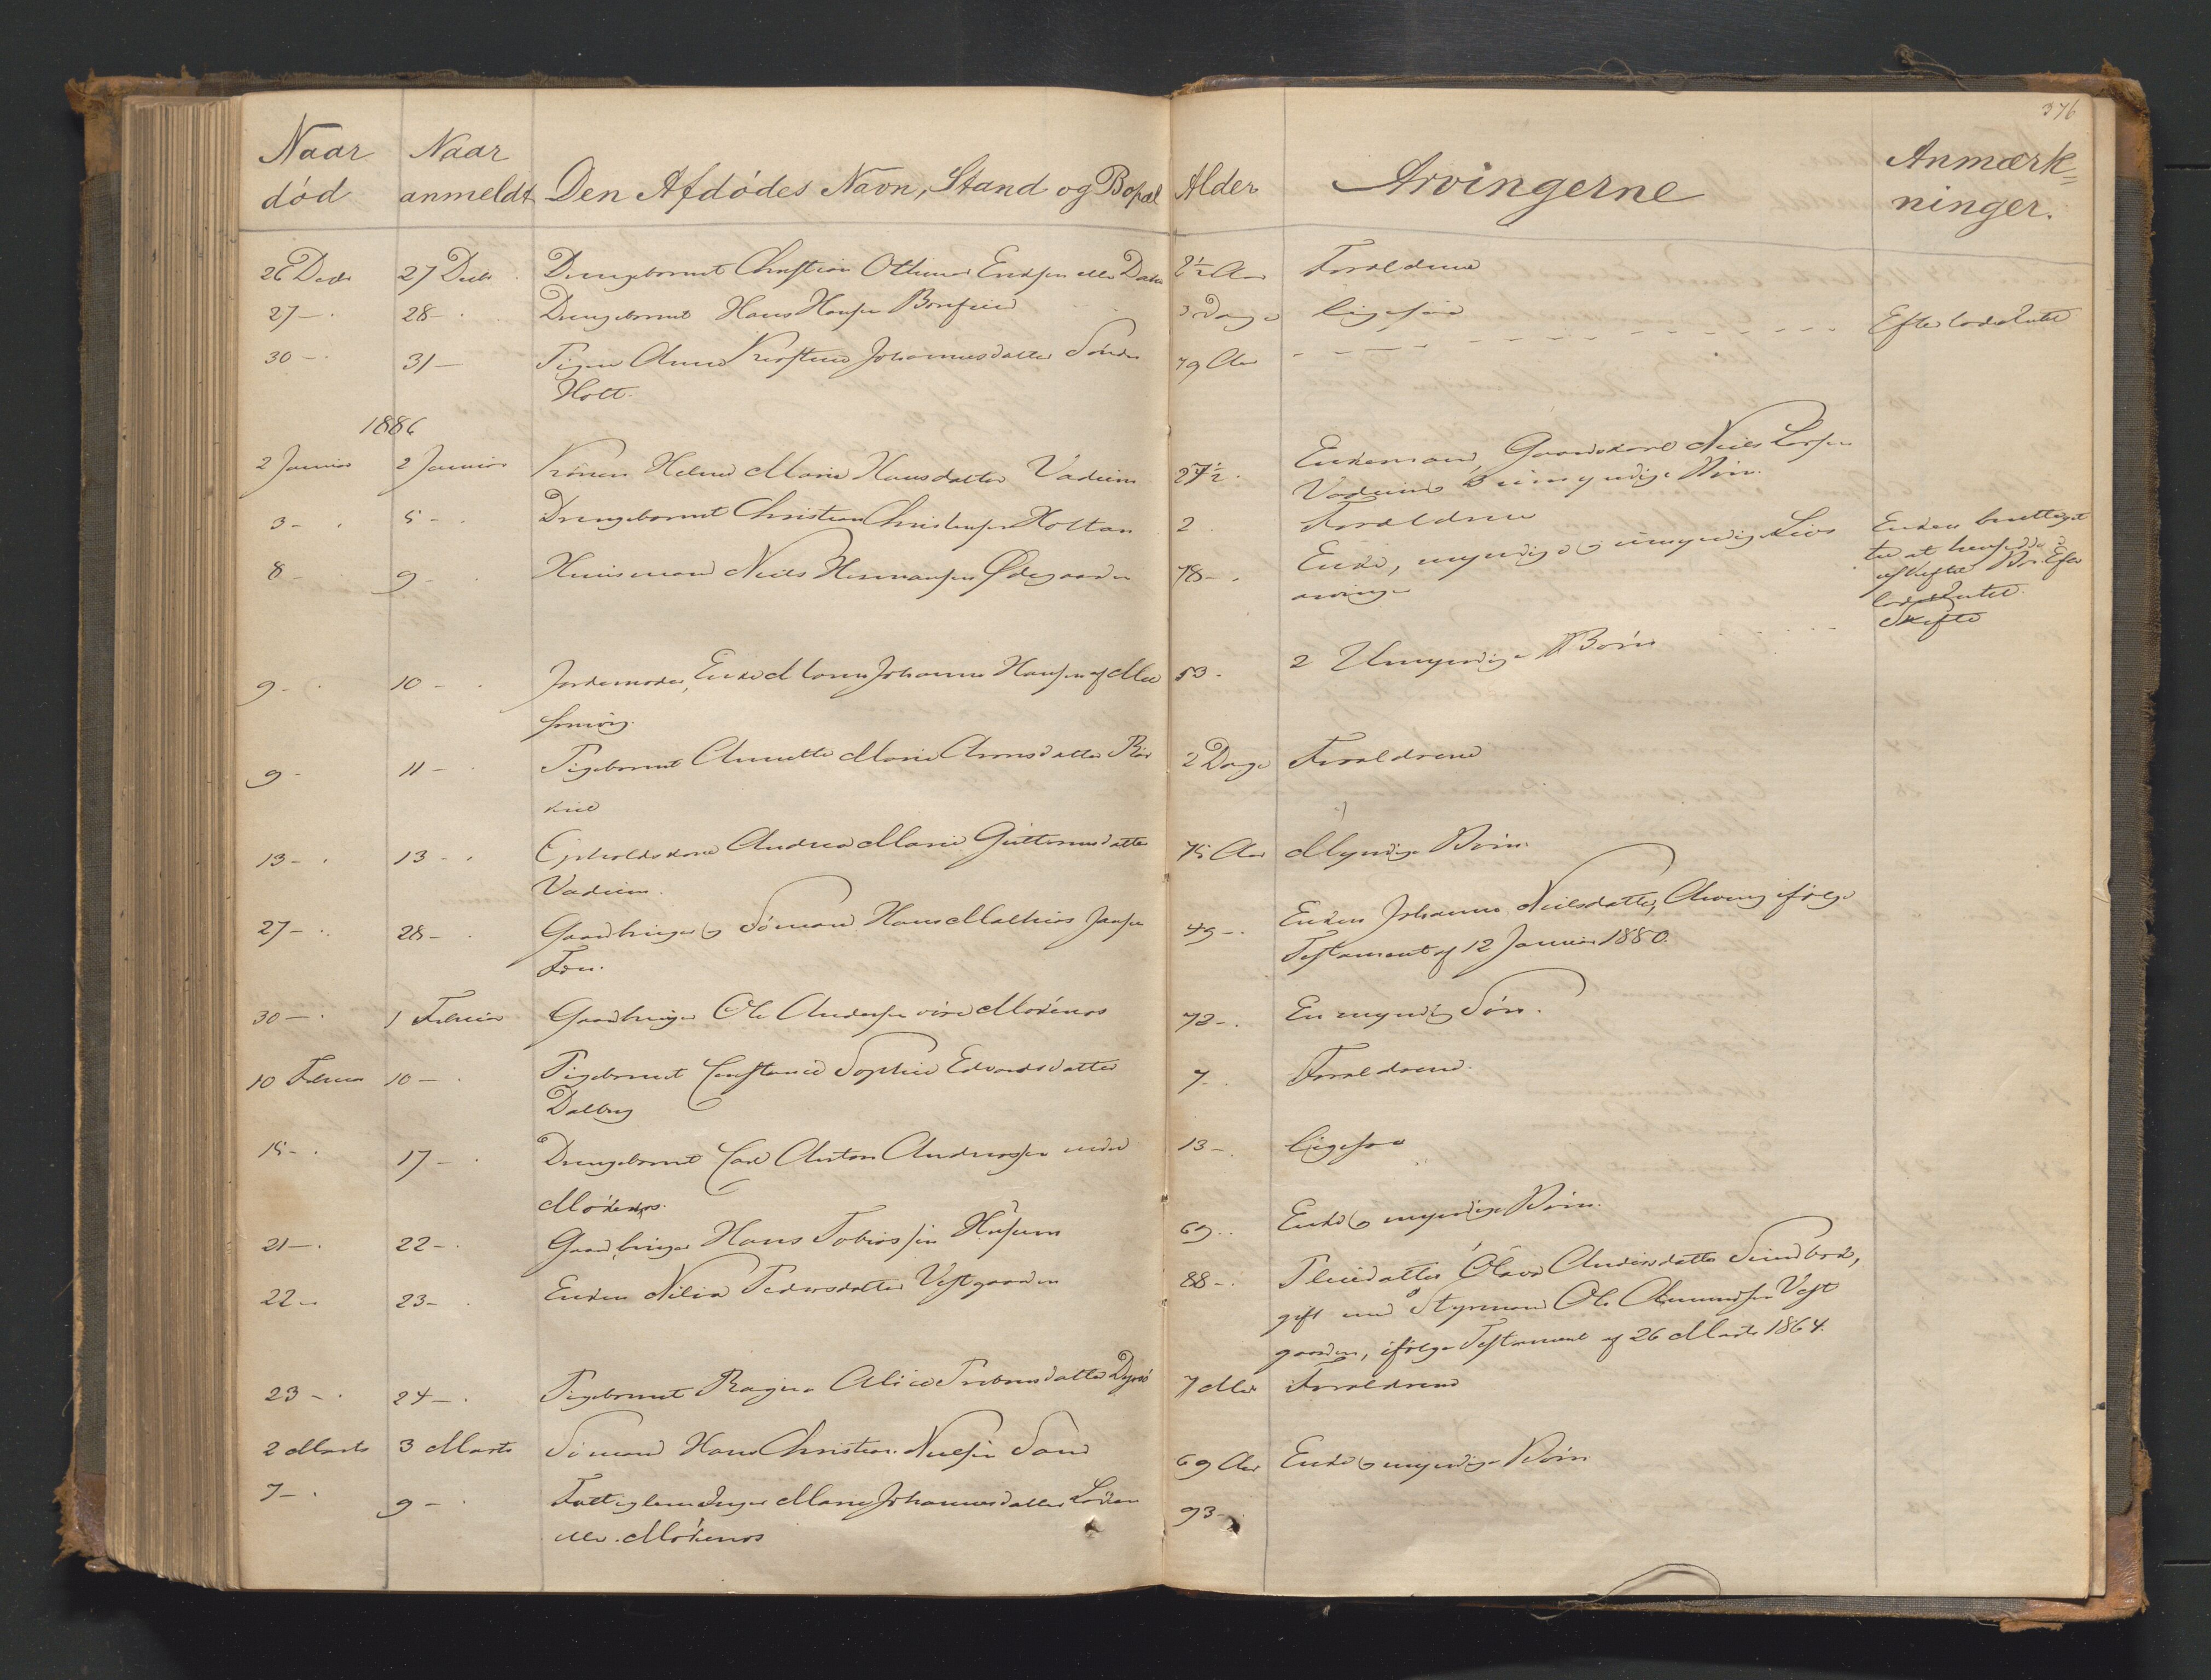 376
Naar død
Naar anmeldt
Den Afdødes Navn, Stand og Bopæl
Alder
Arvingerne
Anmærk=
ninger.
26 Decbr 27 Decbr Drengebarnet Christian Othmar Eriksen 2½ Aar Forældrene
27 – . 28 – . Drengebarnet Hans Hansen 3 Dage ligesaa Efterlod Intet
30 – . 31 – Pigen Anne Kirstine Johannesdatter Søndre 79 Aar
Holt.
1886
2 Januar 2 Januar Konen Helene Marie Hansdatter Vadum 27½ . Enkemand, Gaardskarl Niels Larsen
Vadum & umyndige Børn.
3 – . 5 – . Drengebarnet Christian Christensen Holtan 2 . Forældrene
8 – . 9 – . Huusmand Niels Hermansen Ødegaarden 78 – . Enke, myndige & umyndige Livs
arvinger
Enken
til at
uskiftet Bo. Efter
lod Intet.
Skifte
9 – . 10 – . Jordemoder, Enke Maren Johanne Hansen af 53 . 2 Umyndige Børn
9 – 11 – . Pigebarnet Annette Marie 2 Dage Forældrene
13 – . 13 – . Andrea Marie Guttormsdatter 75 Aar Myndige Børn.
Vadum.
27 – . 28 – . Gaardbruger & Sømand Hans Mathias Jansen 49 – . Enken Johanne Nielsdatter, Arving ifølge
Testament af 12 Januar 1880.
30 – . 1 Februar Gaardbruger Ole Andersen øvre Mørenos 72 – . En myndig Søn.
10 Februar 10 – . Pigebarnet Constance Sophie Edvardsdatter 7 . Forældrene.
Dalby
15 – . 17 – . Drengebarnet Carl Anton Andreassen nedre 13 – . ligesaa
21 – . 22 – . Gaardbruger Hans Tobiassen 69 . . Enke & myndige Børn.
22 – 23 – . Enken Nilia Pedersdatter Vestgaarden 88 – . Pleiedatter Olava Andersdatter
gift med Styrmand Ole Amundsen Vest
gaarden, ifølge Testament af 26 Marts 1864.
23 – . 24 – . Pigebarnet Ragna Alice 7 Mdr Forældrene
2 Marts 3 Marts Sømand Hans Christian Nielsen Sand 69 Aar Enke & myndige Børn
7 – . 9 – . Fattiglem Inger Marie Johannesdatter 93 – .